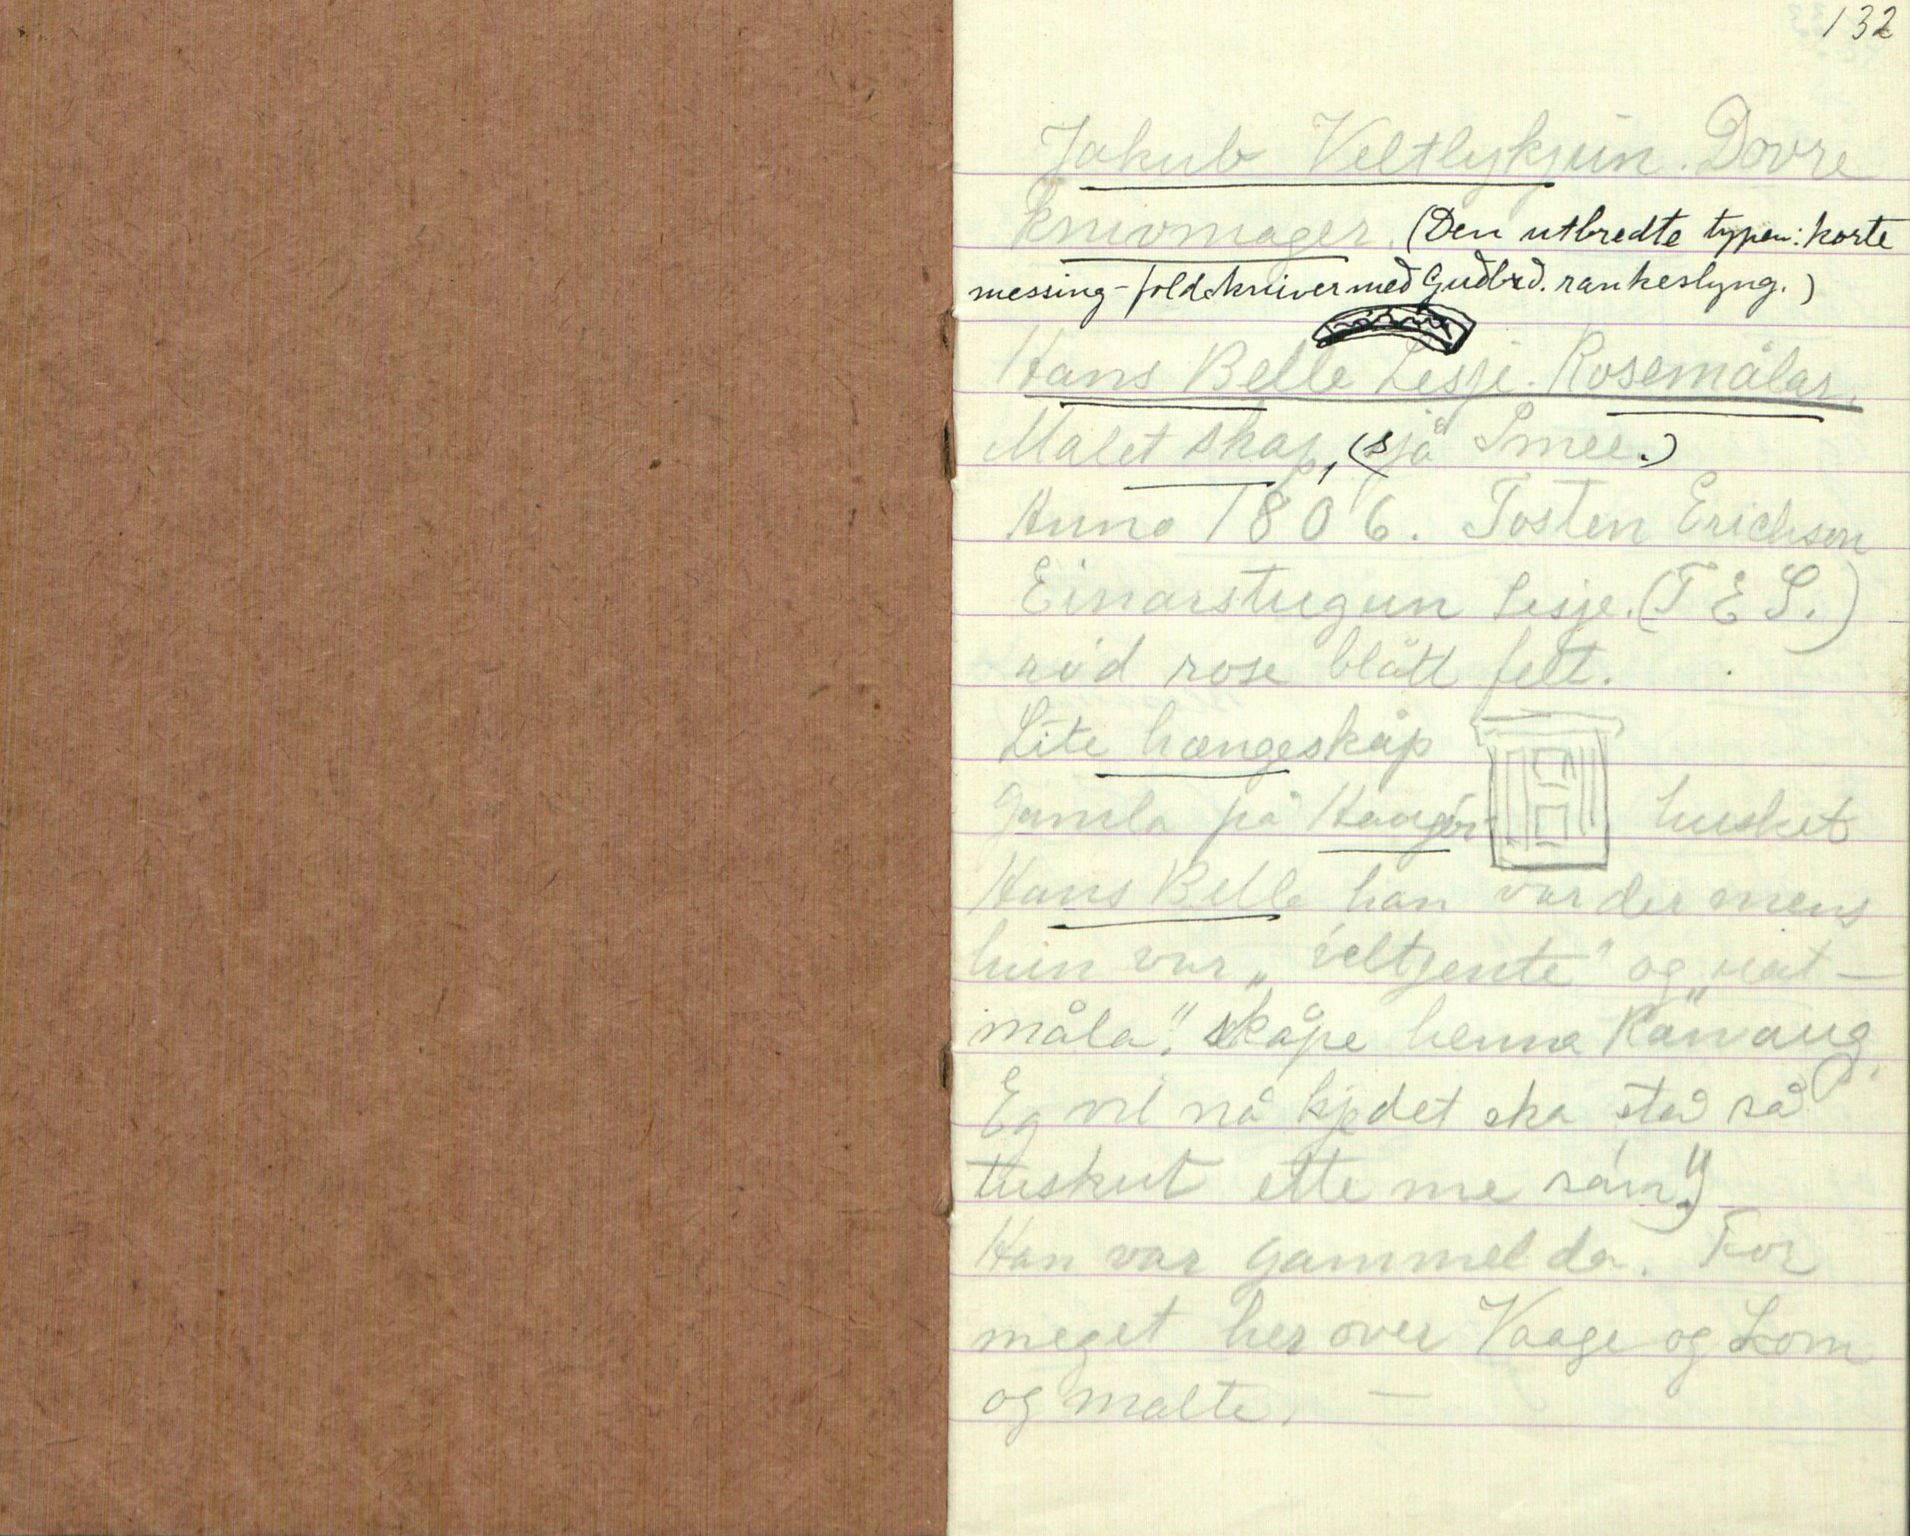 132
Jakub Veltlykjun. Dovre
knivmager. (Den utbredte typen: korte
messing-foldekniver med Gudbrd. rankeslyng.)
Hans Belle Lesje. Rosemålar.
Malet skap, (sjå Smee.)
Anno 1806. Tosten Erichson
Einarstugun Lesje. (T E S.)
rød rose blått felt.
Lite hængeskåp
Gamla på Haugen husket
Hans Belle han var der mens
hun var „veltjente" og
måla." skåpe henna Rånaug.
Eg vil nå det ska sta så
tuskut ette me
Han var gammel da. For
meget her over Vaage og Lom
og malte. —